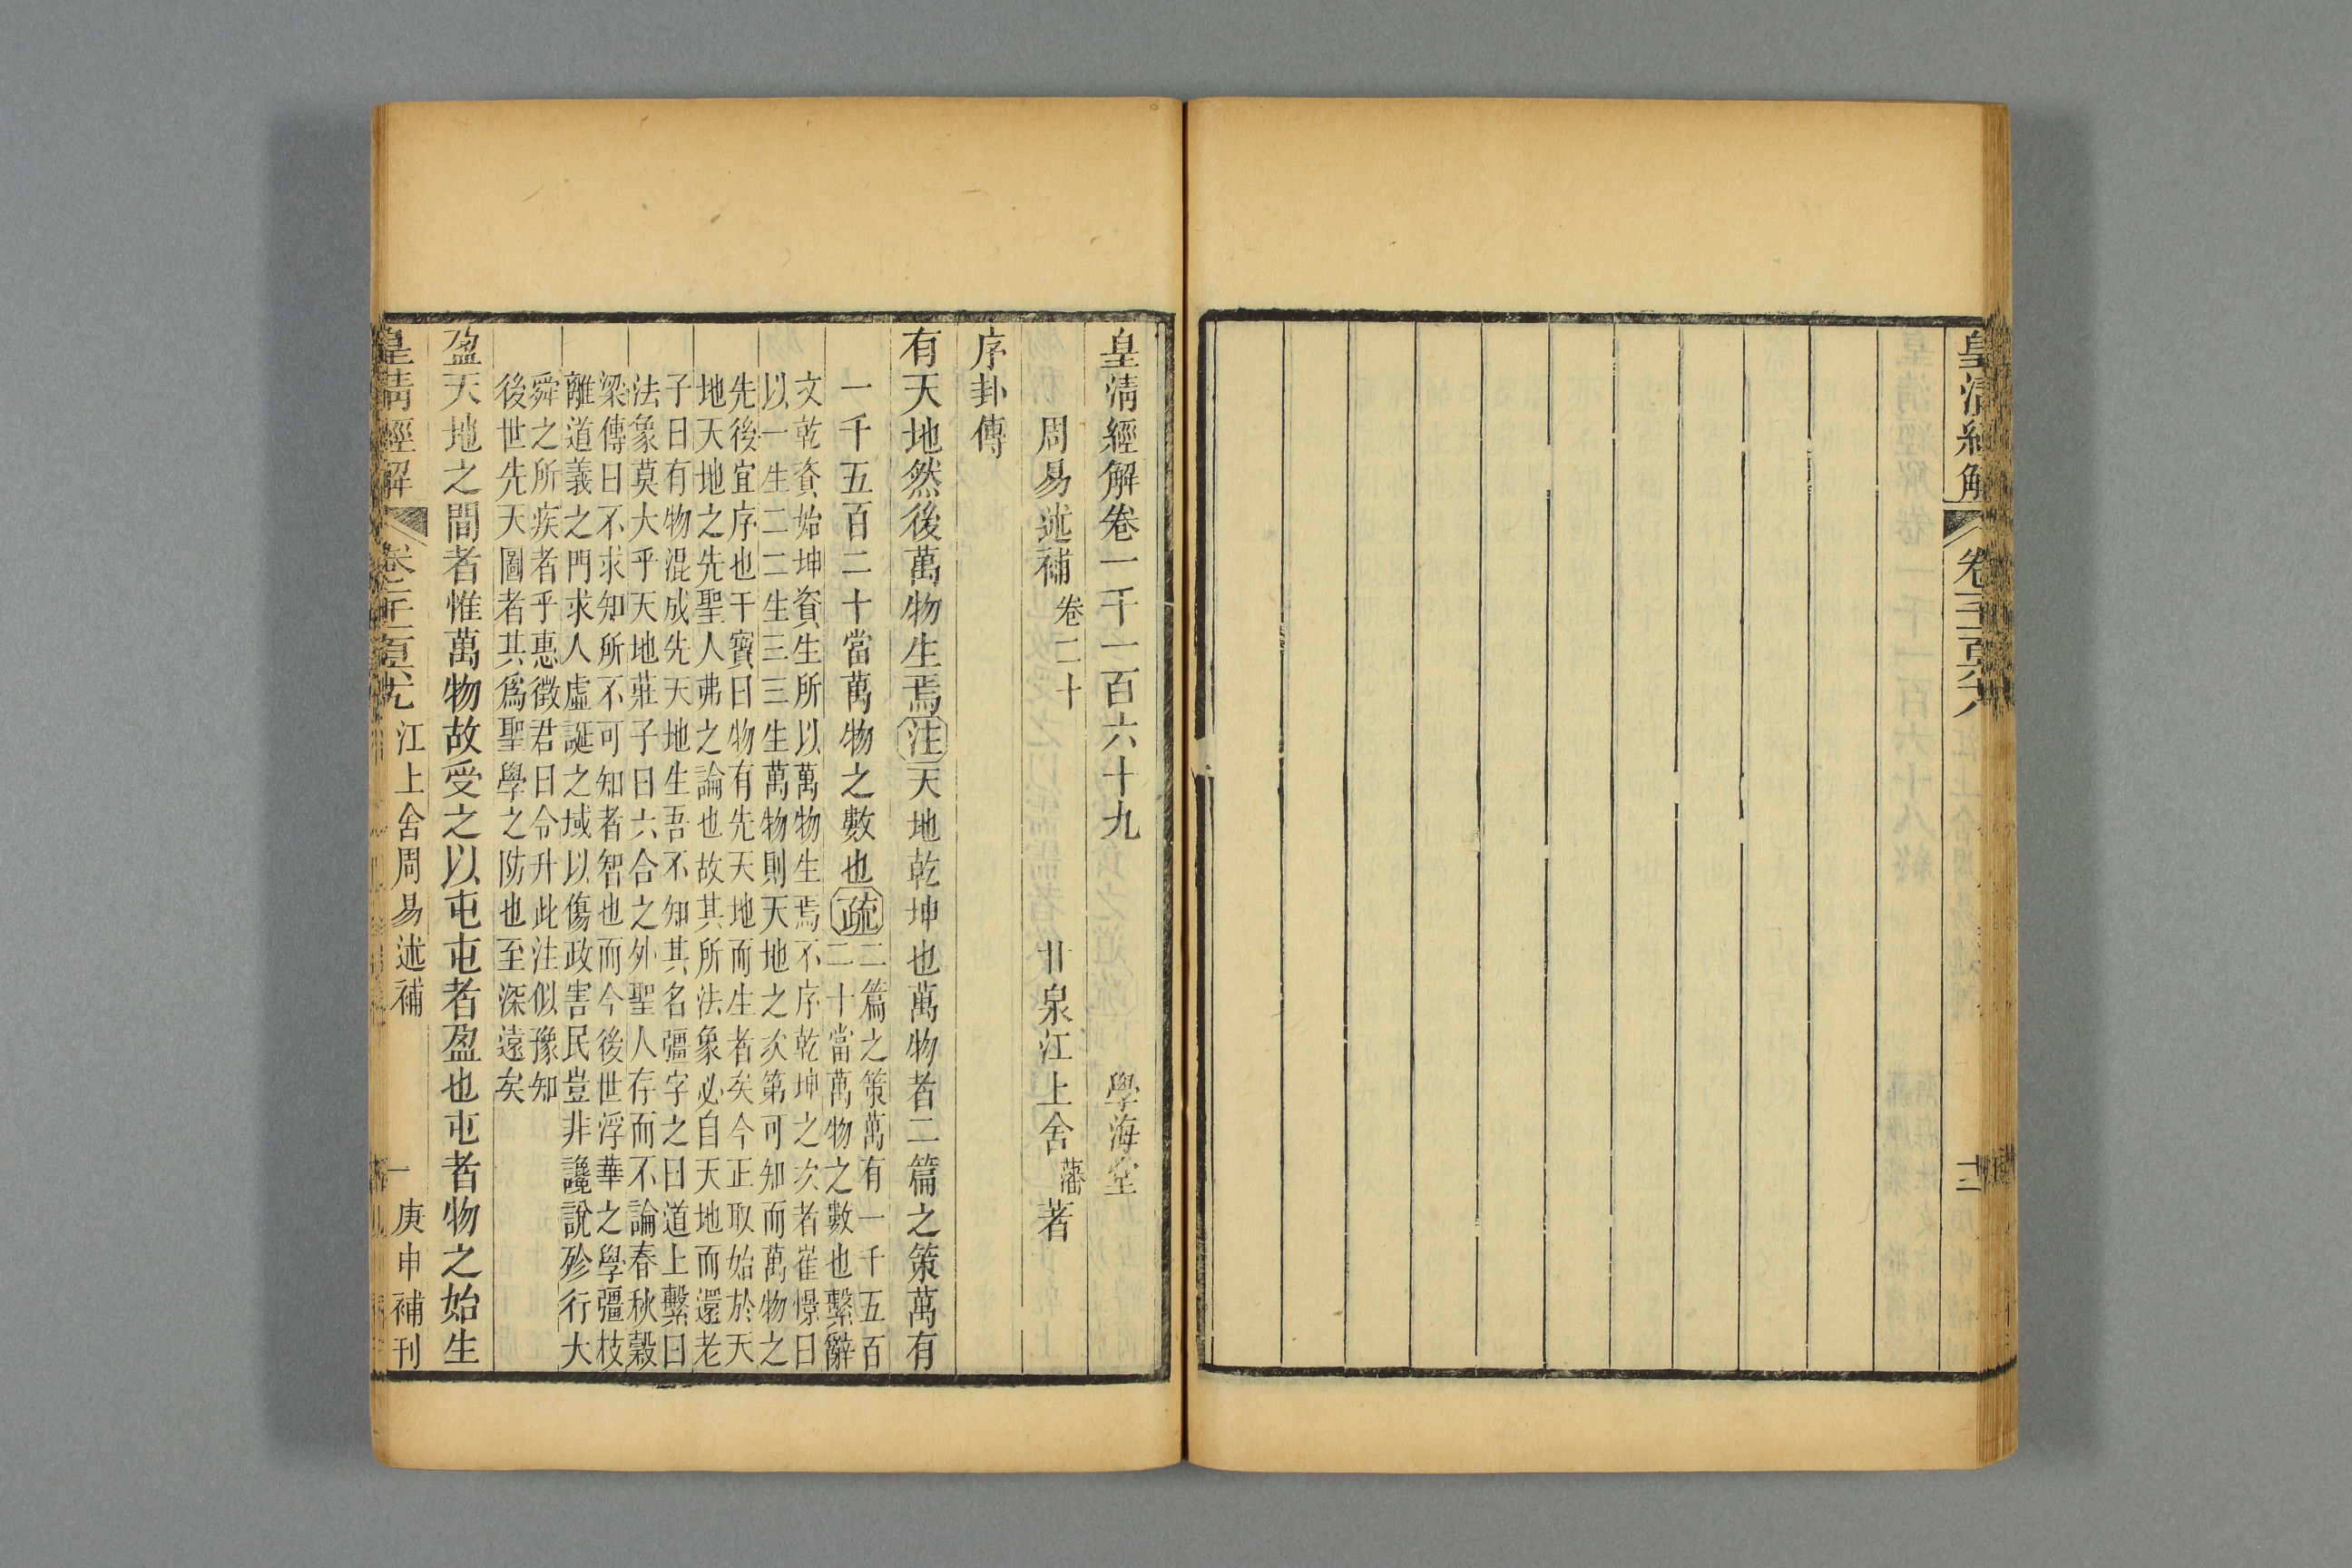 皇清經解
卷千一百六十八
十二
皇清經解卷一千一百六十九
學海堂
周易述補卷二十
甘泉江上舍藩著
序卦傳
有天地然後萬物生焉注天地乾坤也萬物者二篇之策萬有
一千五百二十當萬物之數也疏
二篇之策萬有一千五百
二十當萬物之數也繫辭
文乾資始坤資生所以萬物生焉不序乾坤之次者崔憬曰
以一生二二生三三生萬物則天地之次第可知而萬物之
先後宜序也干寶曰物有先天地而生者矣今正取始於天
地天地之先聖人弗之論也故其所法象必自天地而還老
子曰有物混成先天地生吾不知其名彊字之曰道上繫曰
法象莫大乎天地莊子曰六合之外聖人存而不論春秋穀
梁傳曰不求知所不可知者智也而今後世浮華之學彊枝
離道義之門求人虛誕之域以傷政害民豈非讒說殄行大
舜之所疾者乎惠徵君曰令升此注似豫知
後世先天圖者其爲聖學之防也至深遠矣
盈天地之間者惟萬物故受之以屯屯者盈也屯者物之始生
皇清經解
卷千一百六十九
江上舍周易述補
一
庚申補刊